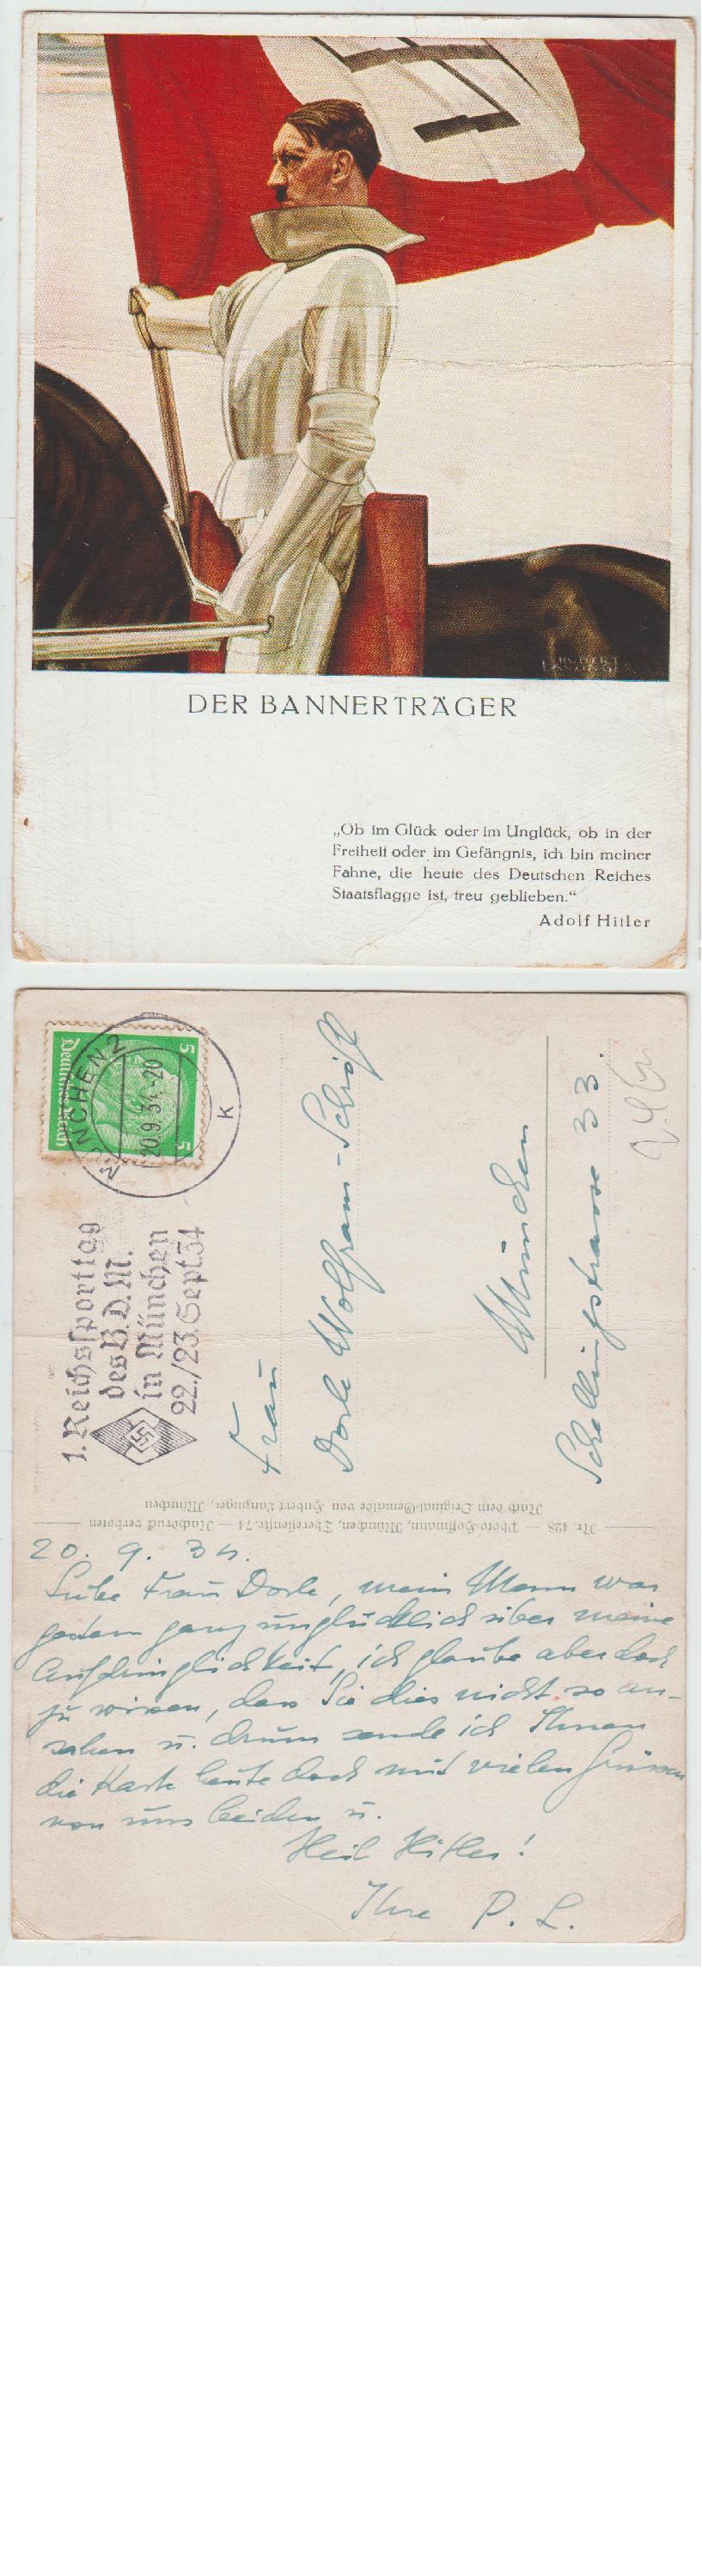 HUBERT
LANZINGER
DER BANNERTRÄGER
„Ob im Glück oder im Unglück, ob in der
Freiheit oder im Gefängnis, ich bin meiner
Fahne, die heute des Deutschen Reiches
Staatsflagge ist, treu geblieben.“
Adolf Hitler
Deutsches Reich
5
5
MÜNCHEN 2
20.9.34-20
K
1. Reichssporttag
des B.D.M.
in München
22./23. Sept. 34
Frau
Dorle Wolfram-
München
Schellingstrasse 33.
Nach dem Original-Gemälde von Hubert Lanzinger, München
Nr. 428 — Photo-Hoffmann, München, Theresienstr. 74 — Nachdruck verboten
20. 9. 34.
Liebe Frau Dorle, mein Mann war
gestern ganz unglücklich über meine
Aufdringlichkeit, ich glaube aber doch
zu wissen, dass Sie dies nicht so an-
sehen u. drum sende ich Ihnen
die Karte heute doch mit vielen Grüssen
von uns beiden u.
Heil Hitler!
Ihre P. L.